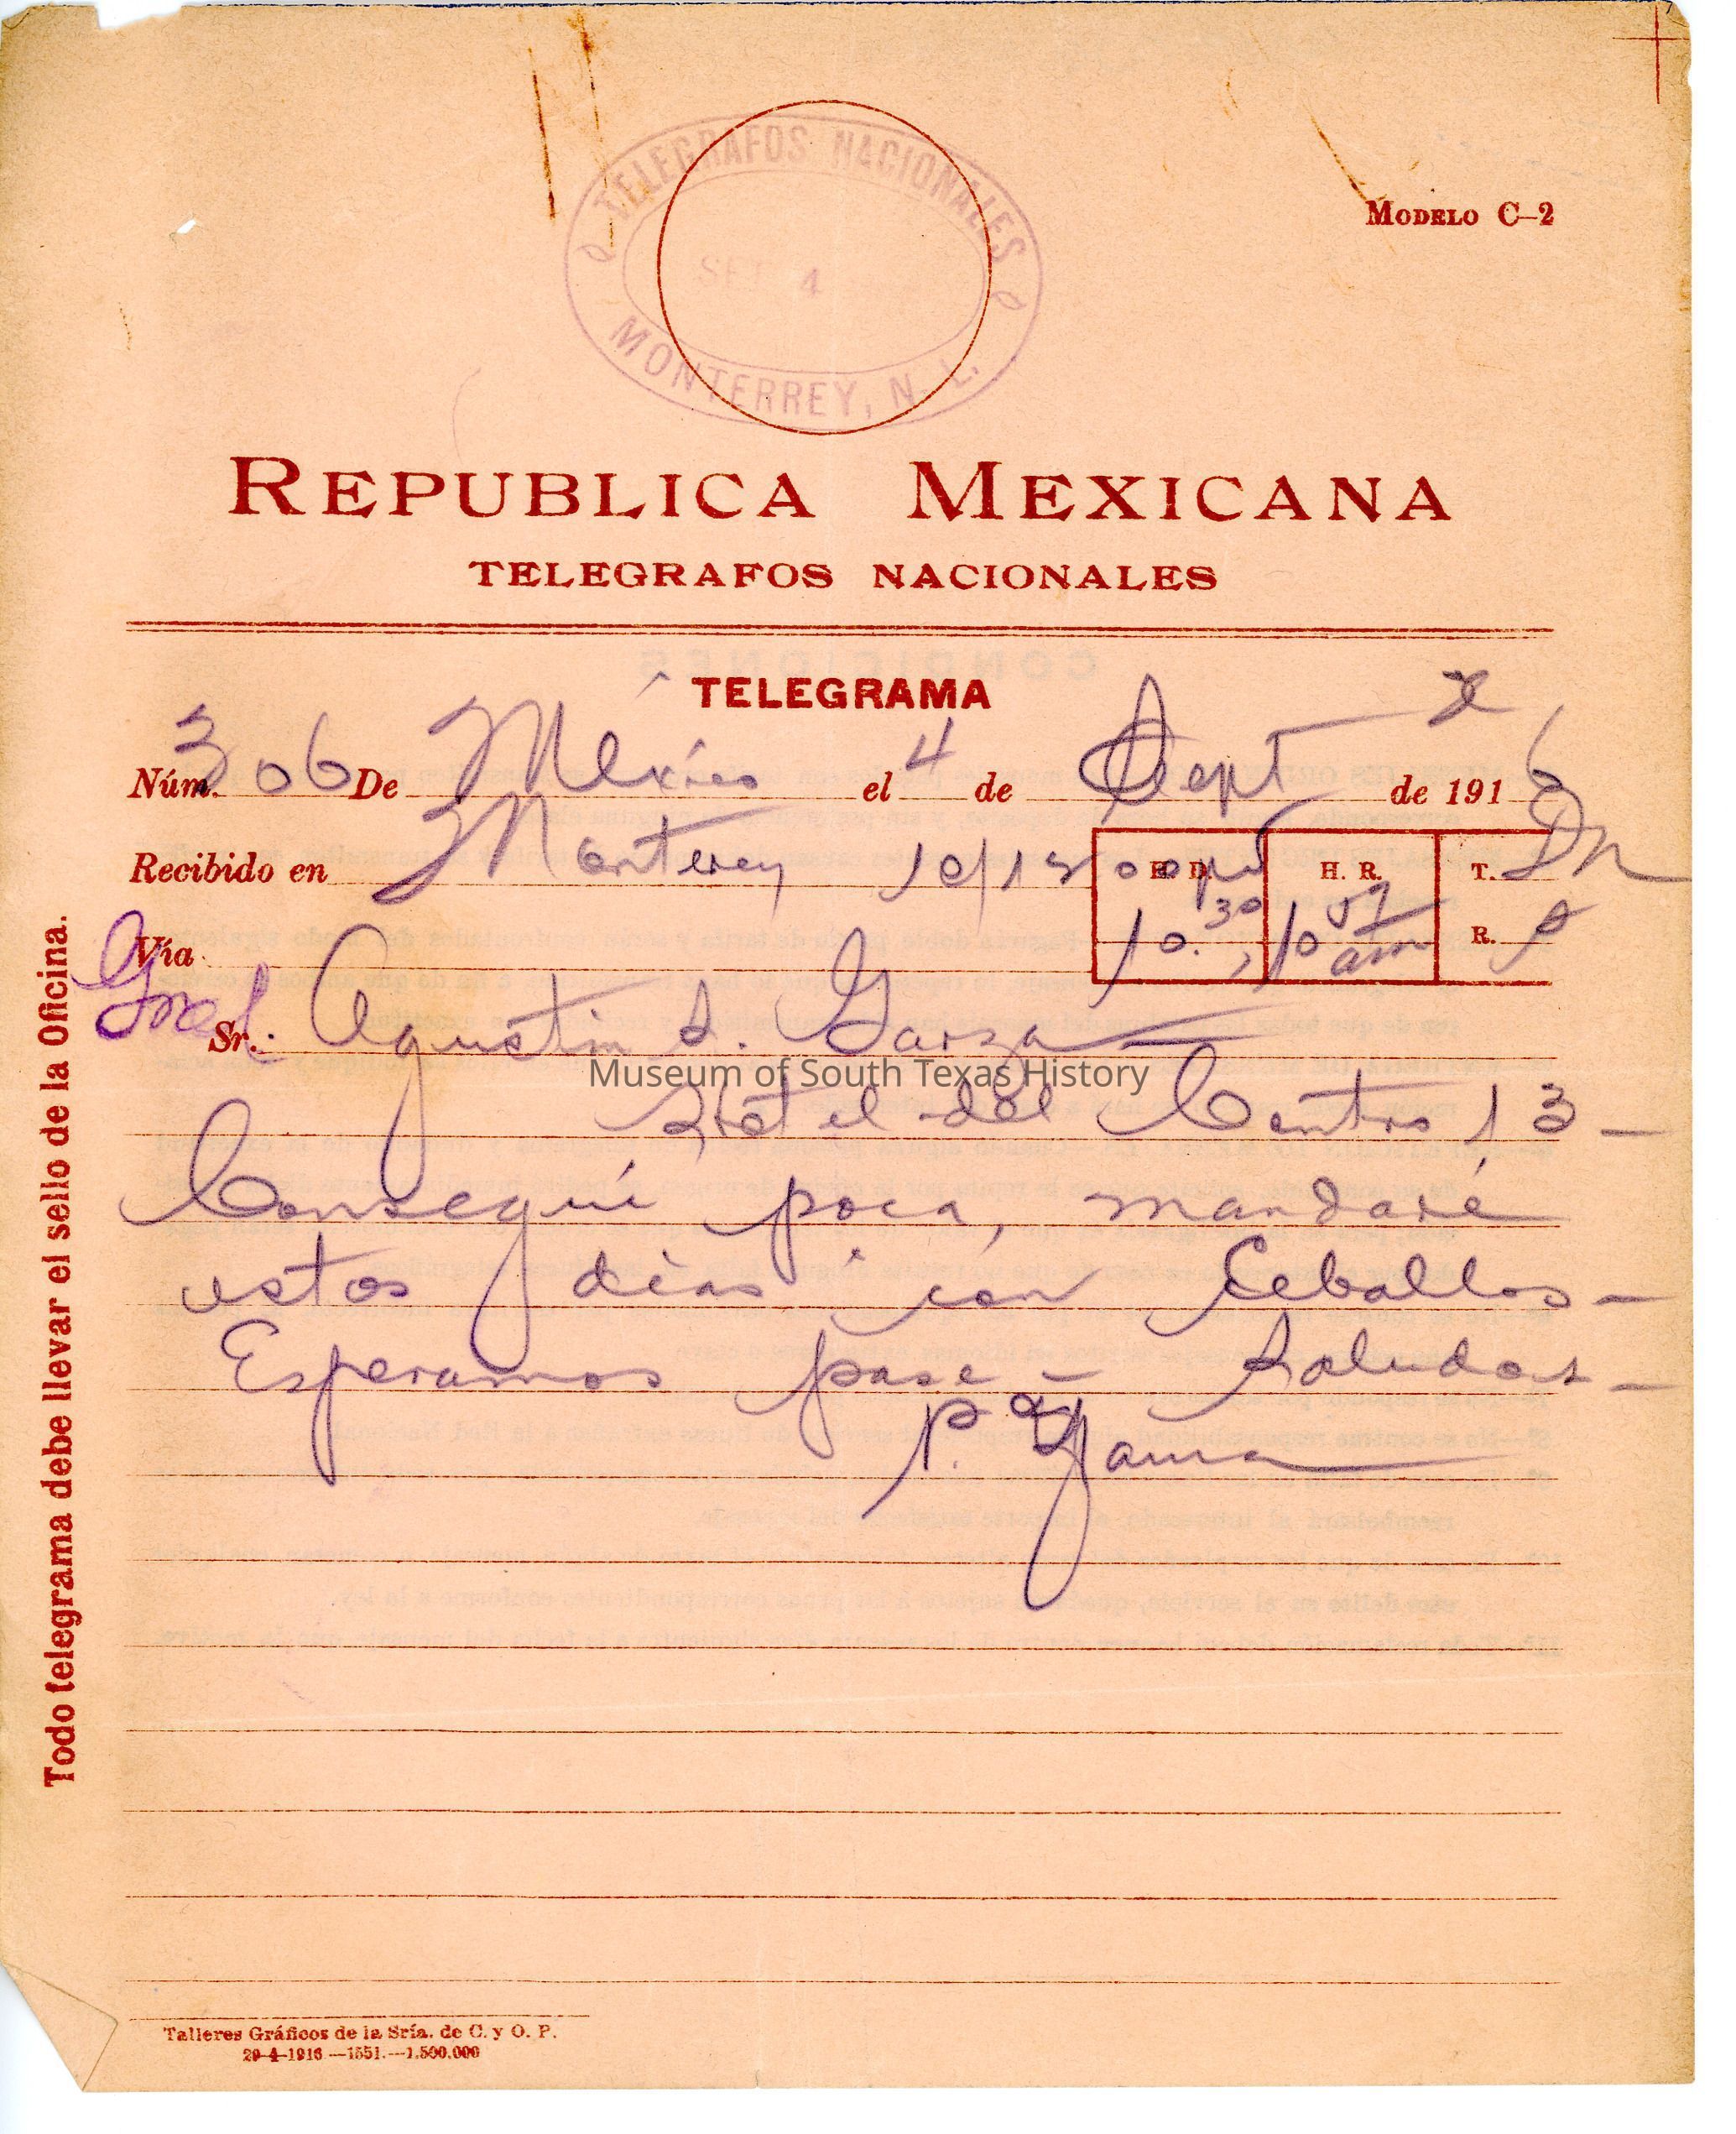 TELEGRAFOS NACIONALES
SET 4
MONTERREY, N. L.
MODELO C-2
REPUBLICA MEXICANA
TELEGRAFOS NACIONALES
TELEGRAMA
Núm. 306 De México el 4 de Sept de 1916
Recibido en Monterey 10/13 H. D. H. R. T. Dn
Vía 10.30 10 57 am R.
Gral Sr. Agustin S. Garza
Museum of South Texas History
Hotel del Centro 13-
Conseguí poca, mandaré
estos dias con Ceballos-
Esperamos pase - Saludos-
P. G. Gama
Todo telegrama debe llevar el sello de la Oficina.
Talleres Gráficos de la Sría. de C. y O. P.
29-4-1916.—1551.—1.500.000